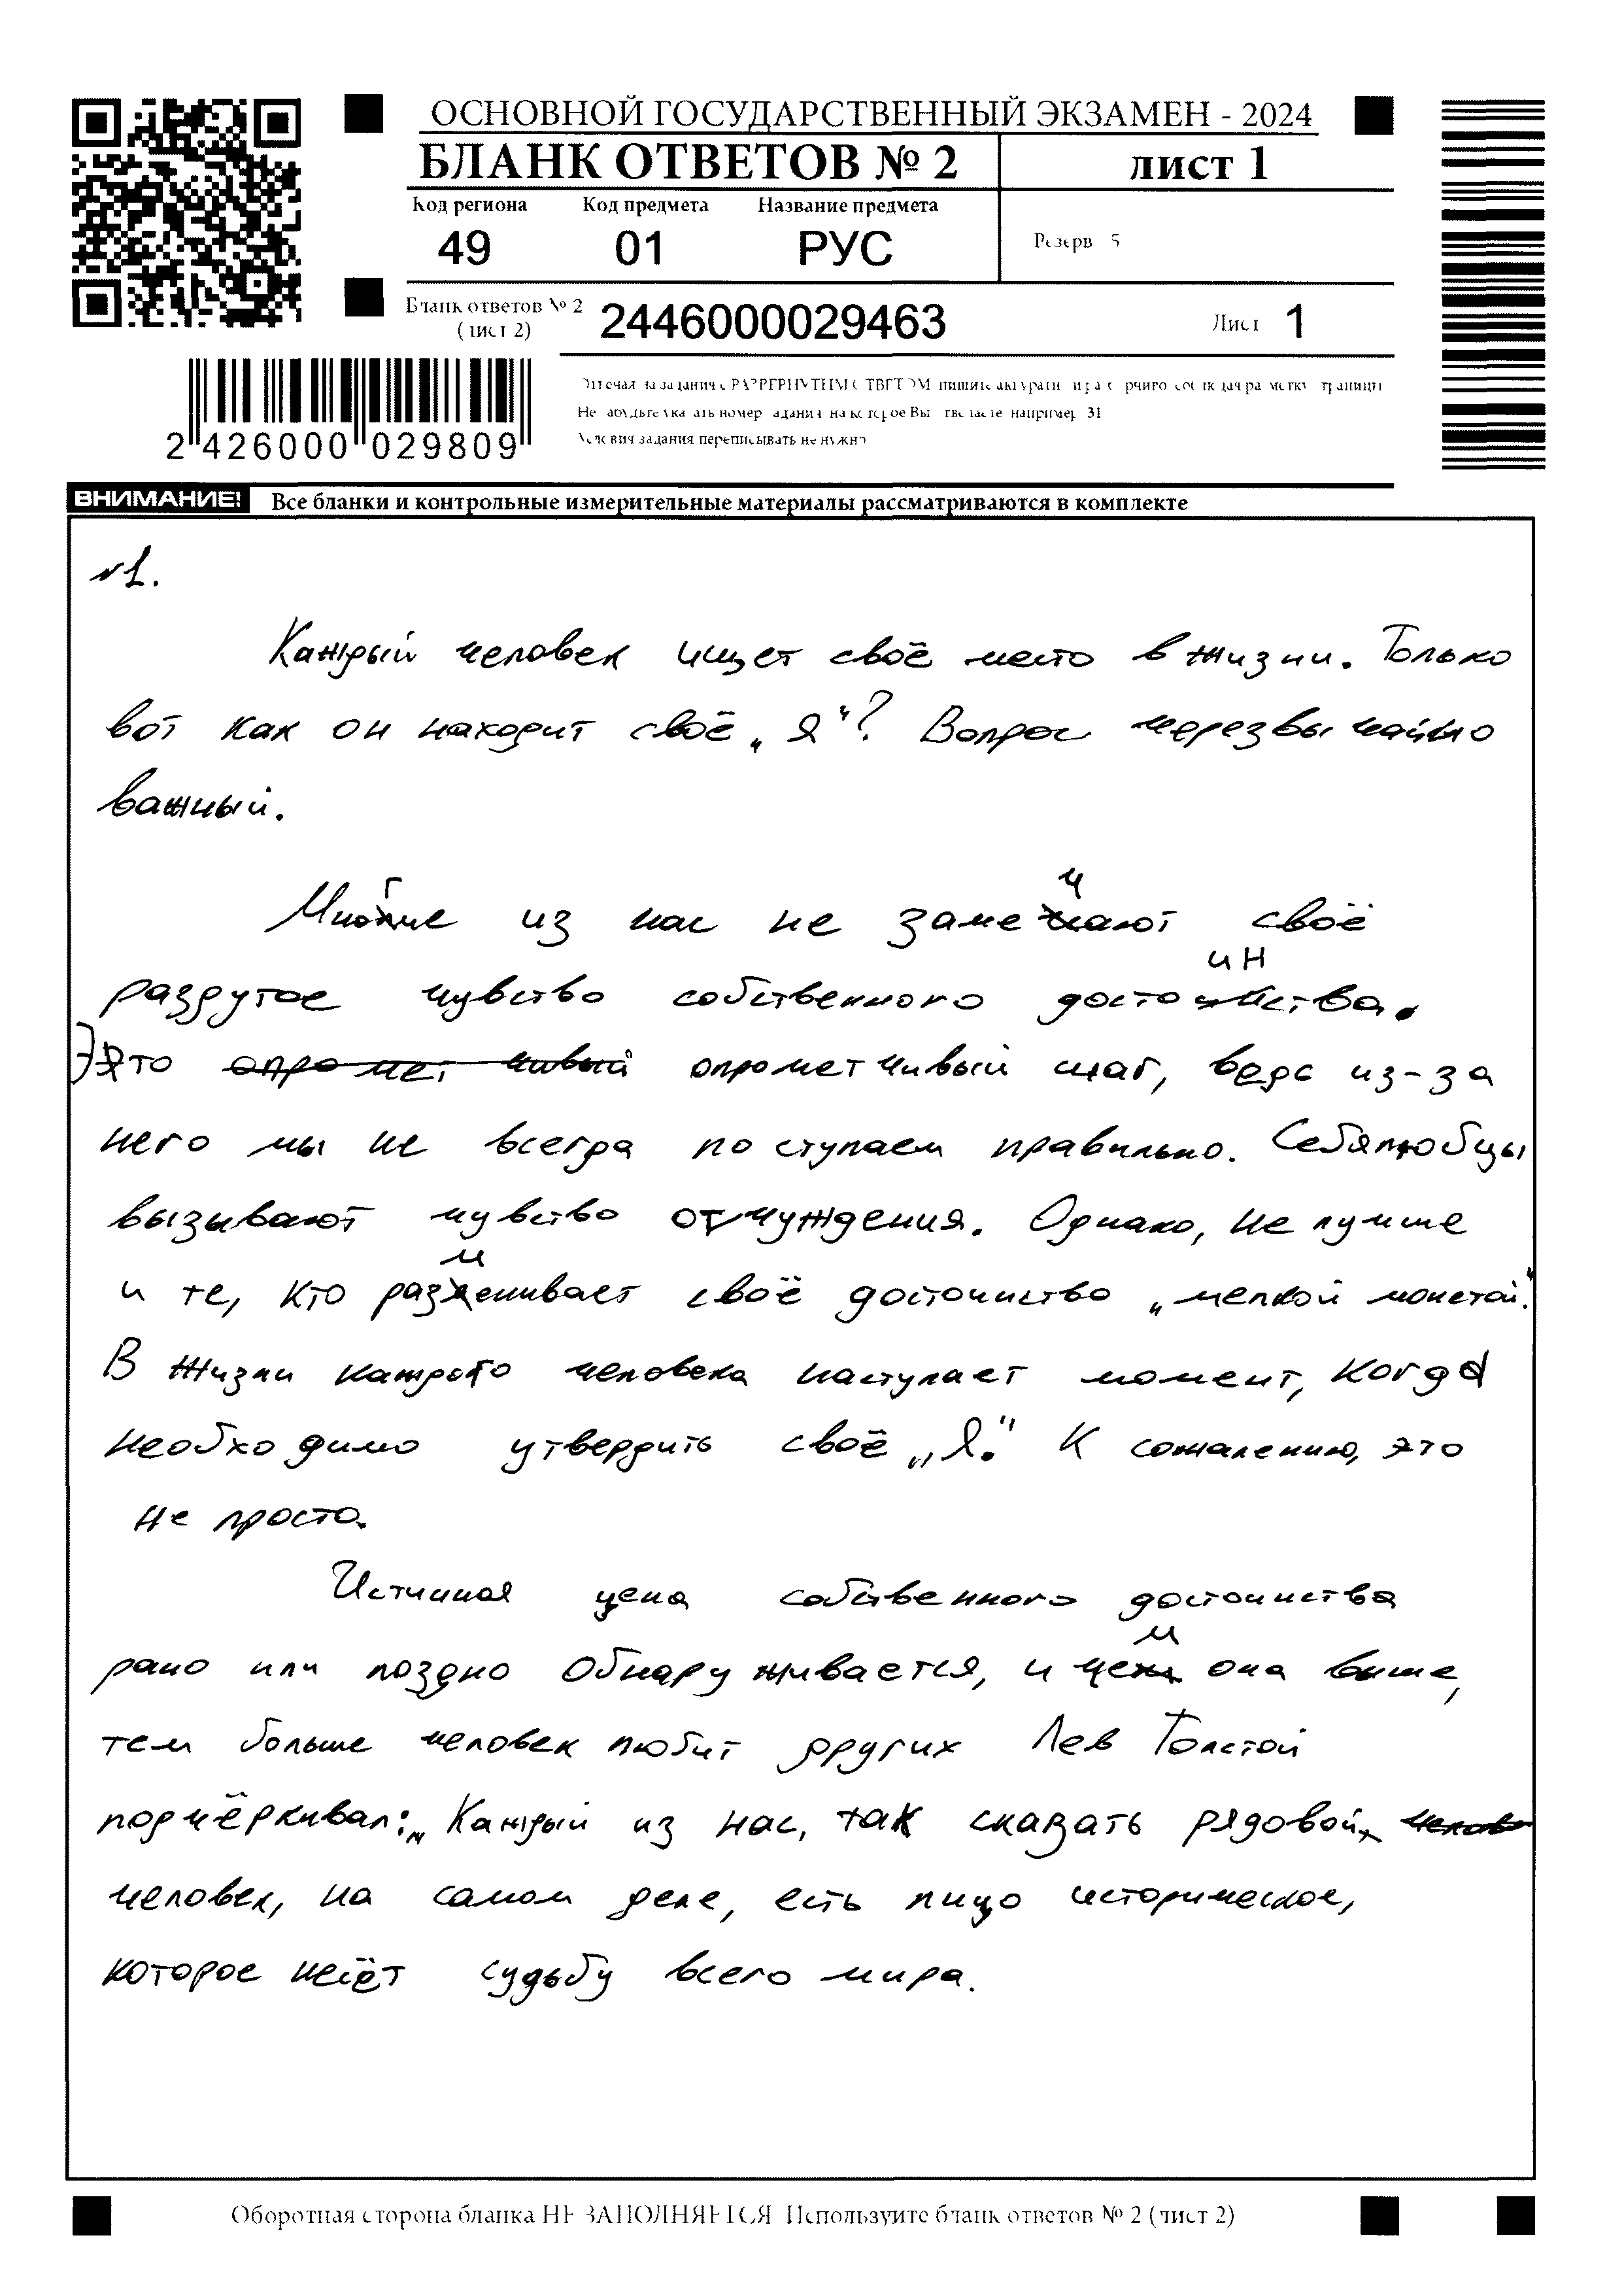 ОСНОВНОЙ ГОСУДАРСТВЕННЫЙ ЭКЗАМЕН - 2024
БЛАНК ОТВЕТОВ № 2
лист 1
Код региона Код предмета Название предмета
49 01 РУС
Резерв 5
Бланк ответов № 2
(лист 2)
2446000029463
Лист 1
2 426000 029809
Условия задания переписывать не нужно
ВНИМАНИЕ! Все бланки и контрольные измерительные материалы рассматриваются в комплекте
№1.
Каждый человек ищет своё место в жизни. Только
вот как он находит своё „Я“? Вопрос черезвычайно
важный.
Многие из нас не замечают своё
раздутое чувство собственного достоинства.
Это опрометчивый опрометчивый шаг, ведь из-за
него мы не всегда поступаем правильно. Себялюбцы
вызывают чувство отчуждения. Однако, не лучше
и те, кто разменивает своё достоинство „мелкой монетой“.
В жизни каждого человека наступает момент, когда
необходимо утвердить своё „Я.“ К сожалению, это
не просто.
Истинная цена собственного достоинства
рано или поздно обнаруживается, и чем она выше,
тем больше человек любит других Лев Толстой
подчёркивал: „Каждый из нас, так сказать рядовой
человек, на самом деле, есть лицо историческое,
которое несёт судьбу всего мира.
Оборотная сторона бланка НЕ ЗАПОЛНЯЕТСЯ Используйте бланк ответов № 2 (лист 2)